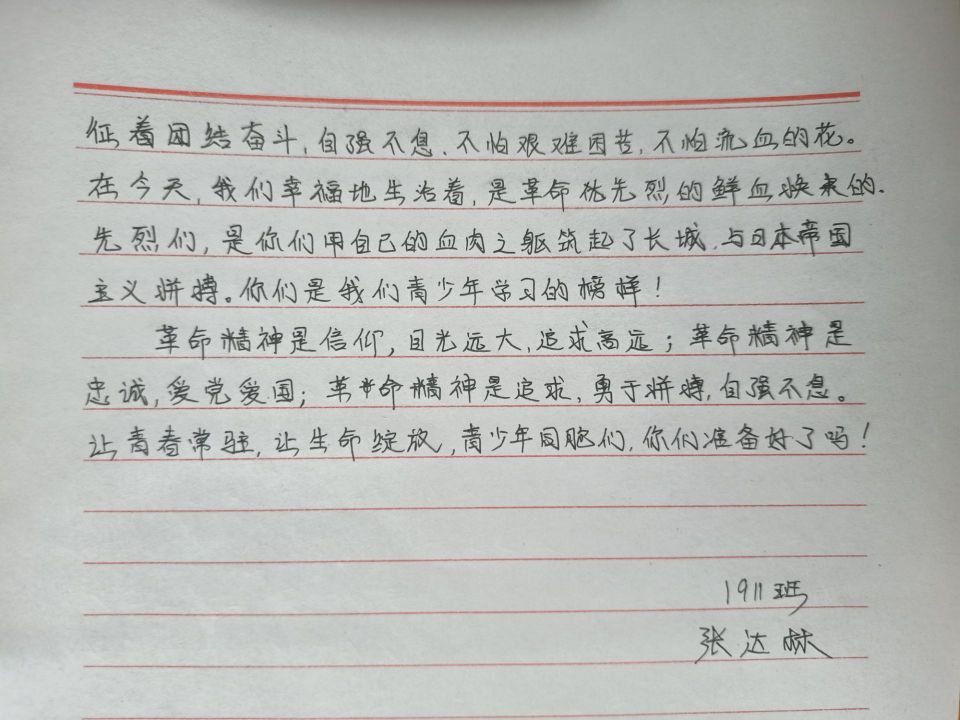 征着团结奋斗,自强不息、不怕艰难困苦,不怕流血的花。
在今天,我们幸福地生活着,是革命优先烈的鲜血换来的.
先烈们,是你们用自己的血肉之躯筑起了长城,与日本帝国
主义拼搏。你们是我们青少年学习的榜样!
革命精神是信仰,目光远大,追求高远;革命精神是
忠诚,爱党爱国;革命精神是追求,勇于拼搏,自强不息。
让青春常驻,让生命绽放,青少年同胞们,你们准备好了吗!
1911班
张达林